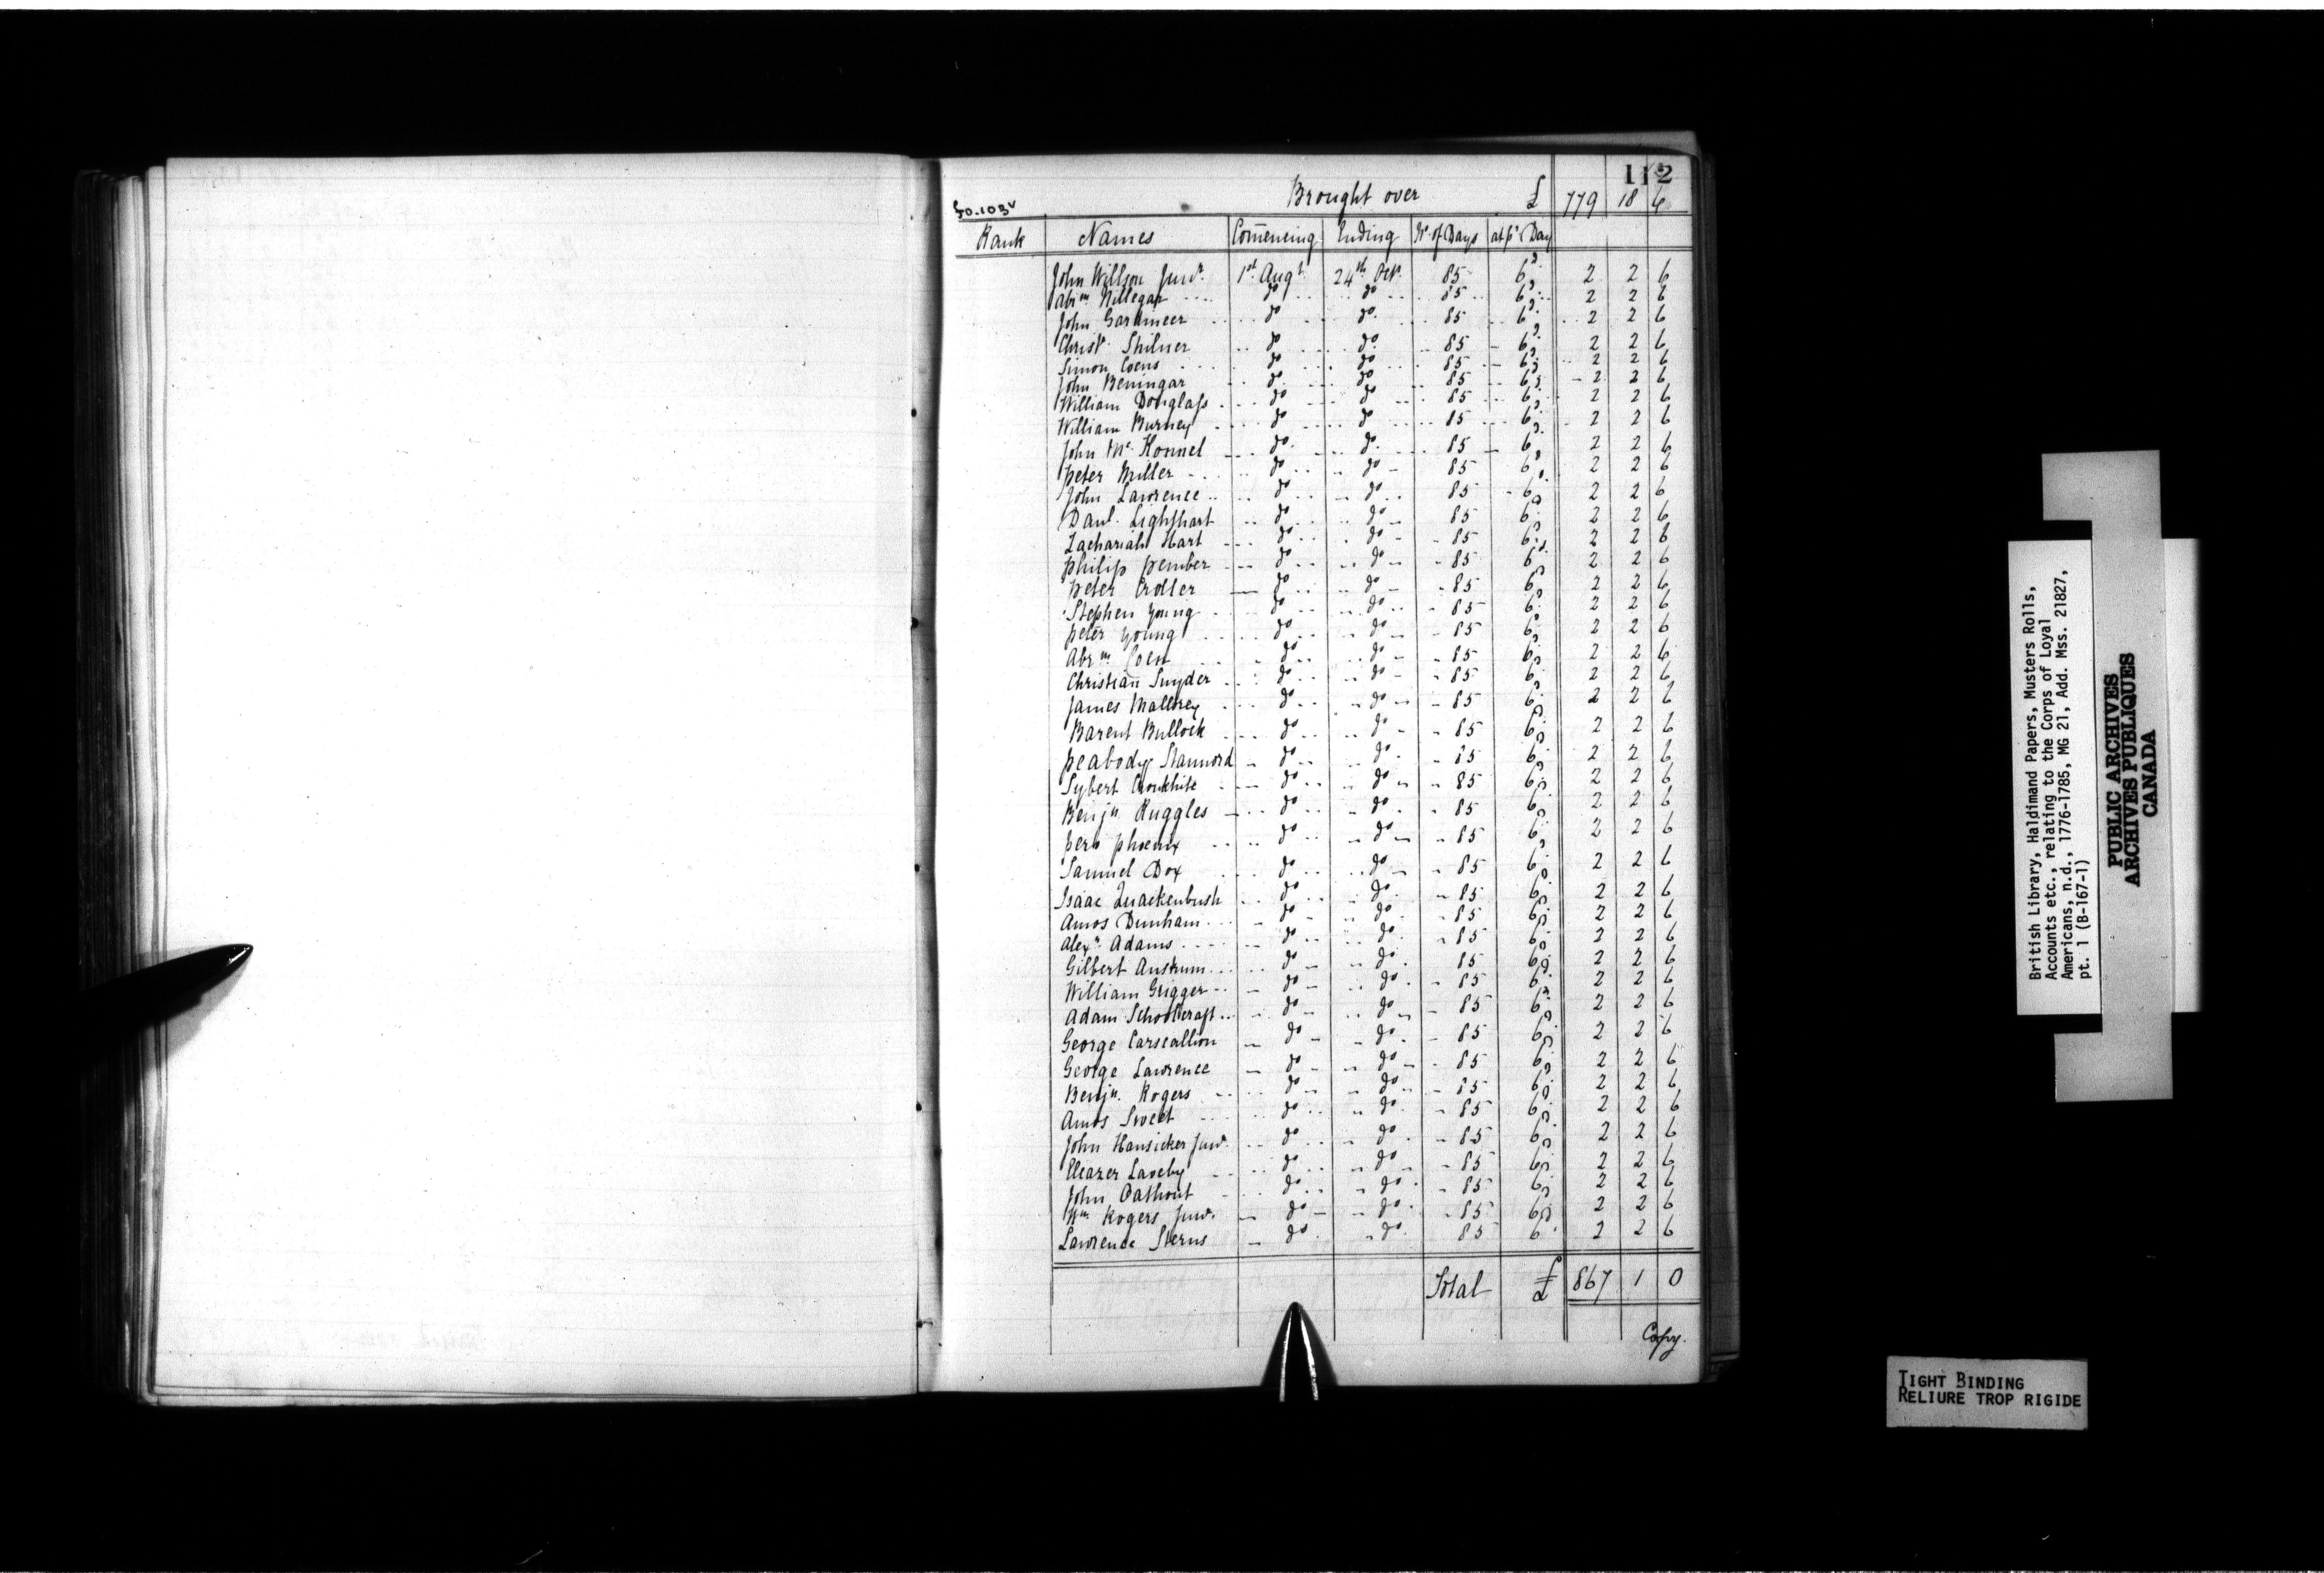 112
fo. 103v
Brought over £ 779 18 6
Rank Names Comencing Ending No. of Days at pr. Day
John Willson Junr. 1st. Augt. 24th. Octr. 85 6d 2 2 6
Abrm. Hillegar do do 85 6d 2 2 6
John Gardineer do do 85 6d 2 2 6
Christr. Shilner do do 85 6d 2 2 6
Simon Coens do do 85 6d 2 2 6
John Beningar do do 85 6d 2 2 6
William Douglass do do 85 6d 2 2 6
William Burney do do 85 6d 2 2 6
John Mc. Konnel do do 85 6d 2 2 6
Peter Miller do do 85 6d 2 2 6
John Lawrence do do 85 6d 2 2 6
Danl. Lighthart do do 85 6d 2 2 6
Zachariah Hart do do 85 6d 2 2 6
Philip Pember do do 85 6d 2 2 6
Peter Crotler do do 85 6d 2 2 6
Stephen Young do do 85 6d 2 2 6
Peter Young do do 85 6d 2 2 6
Abrm. Coen do do 85 6d 2 2 6
Christian Snyder do do 85 6d 2 2 6
James Mallorey do do 85 6d 2 2 6
Barent Bullock do do 85 6d 2 2 6
Peabody Stannord do do 85 6d 2 2 6
Sybert Cronkhite do do 85 6d 2 2 6
Benjn. Ruggles do do 85 6d 2 2 6
Pero Phoenix do do 85 6d 2 2 6
Samuel Dox do do 85 6d 2 2 6
Isaac Quackenbush do do 85 6d 2 2 6
Amos Dunham do do 85 6d 2 2 6
Alexr. Adams do do 85 6d 2 2 6
Gilbert Anstrum do do 85 6d 2 2 6
William Grigger do do 85 6d 2 2 6
Adam Schoolcraft do do 85 6d 2 2 6
George Carscallion do do 85 6d 2 2 6
George Lawrence do do 85 6d 2 2 6
Benjn. Rogers do do 85 6d 2 2 6
Amos Sweet do do 85 6d 2 2 6
John Hansicker Junr. do do 85 6d 2 2 6
Eleazer Laveby do do 85 6d 2 2 6
John Oathout do do 85 6d 2 2 6
Wm. Rogers Junr. do do 85 6d 2 2 6
Lawrence Sterns do do 85 6 2 2 6
Total £ 867 1 0
Copy.
British Library, Haldimand Papers, Musters Rolls,
Accounts etc., relating to the Corps of Loyal
Americans, n.d., 1776-1785, MG 21, Add. Mss. 21827,
pt. 1 (B-167-1)
PUBLIC ARCHIVES
ARCHIVES PUBLIQUES
CANADA
TIGHT BINDING
RELIURE TROP RIGIDE